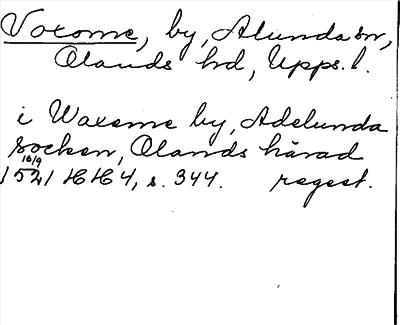 Voxome, by, Alunda sn,
Olands hd, Upps. l.
i Waxeme by, Adelunda
socken, Olands härad
16/9
1521 HH 4, s. 344. regest.